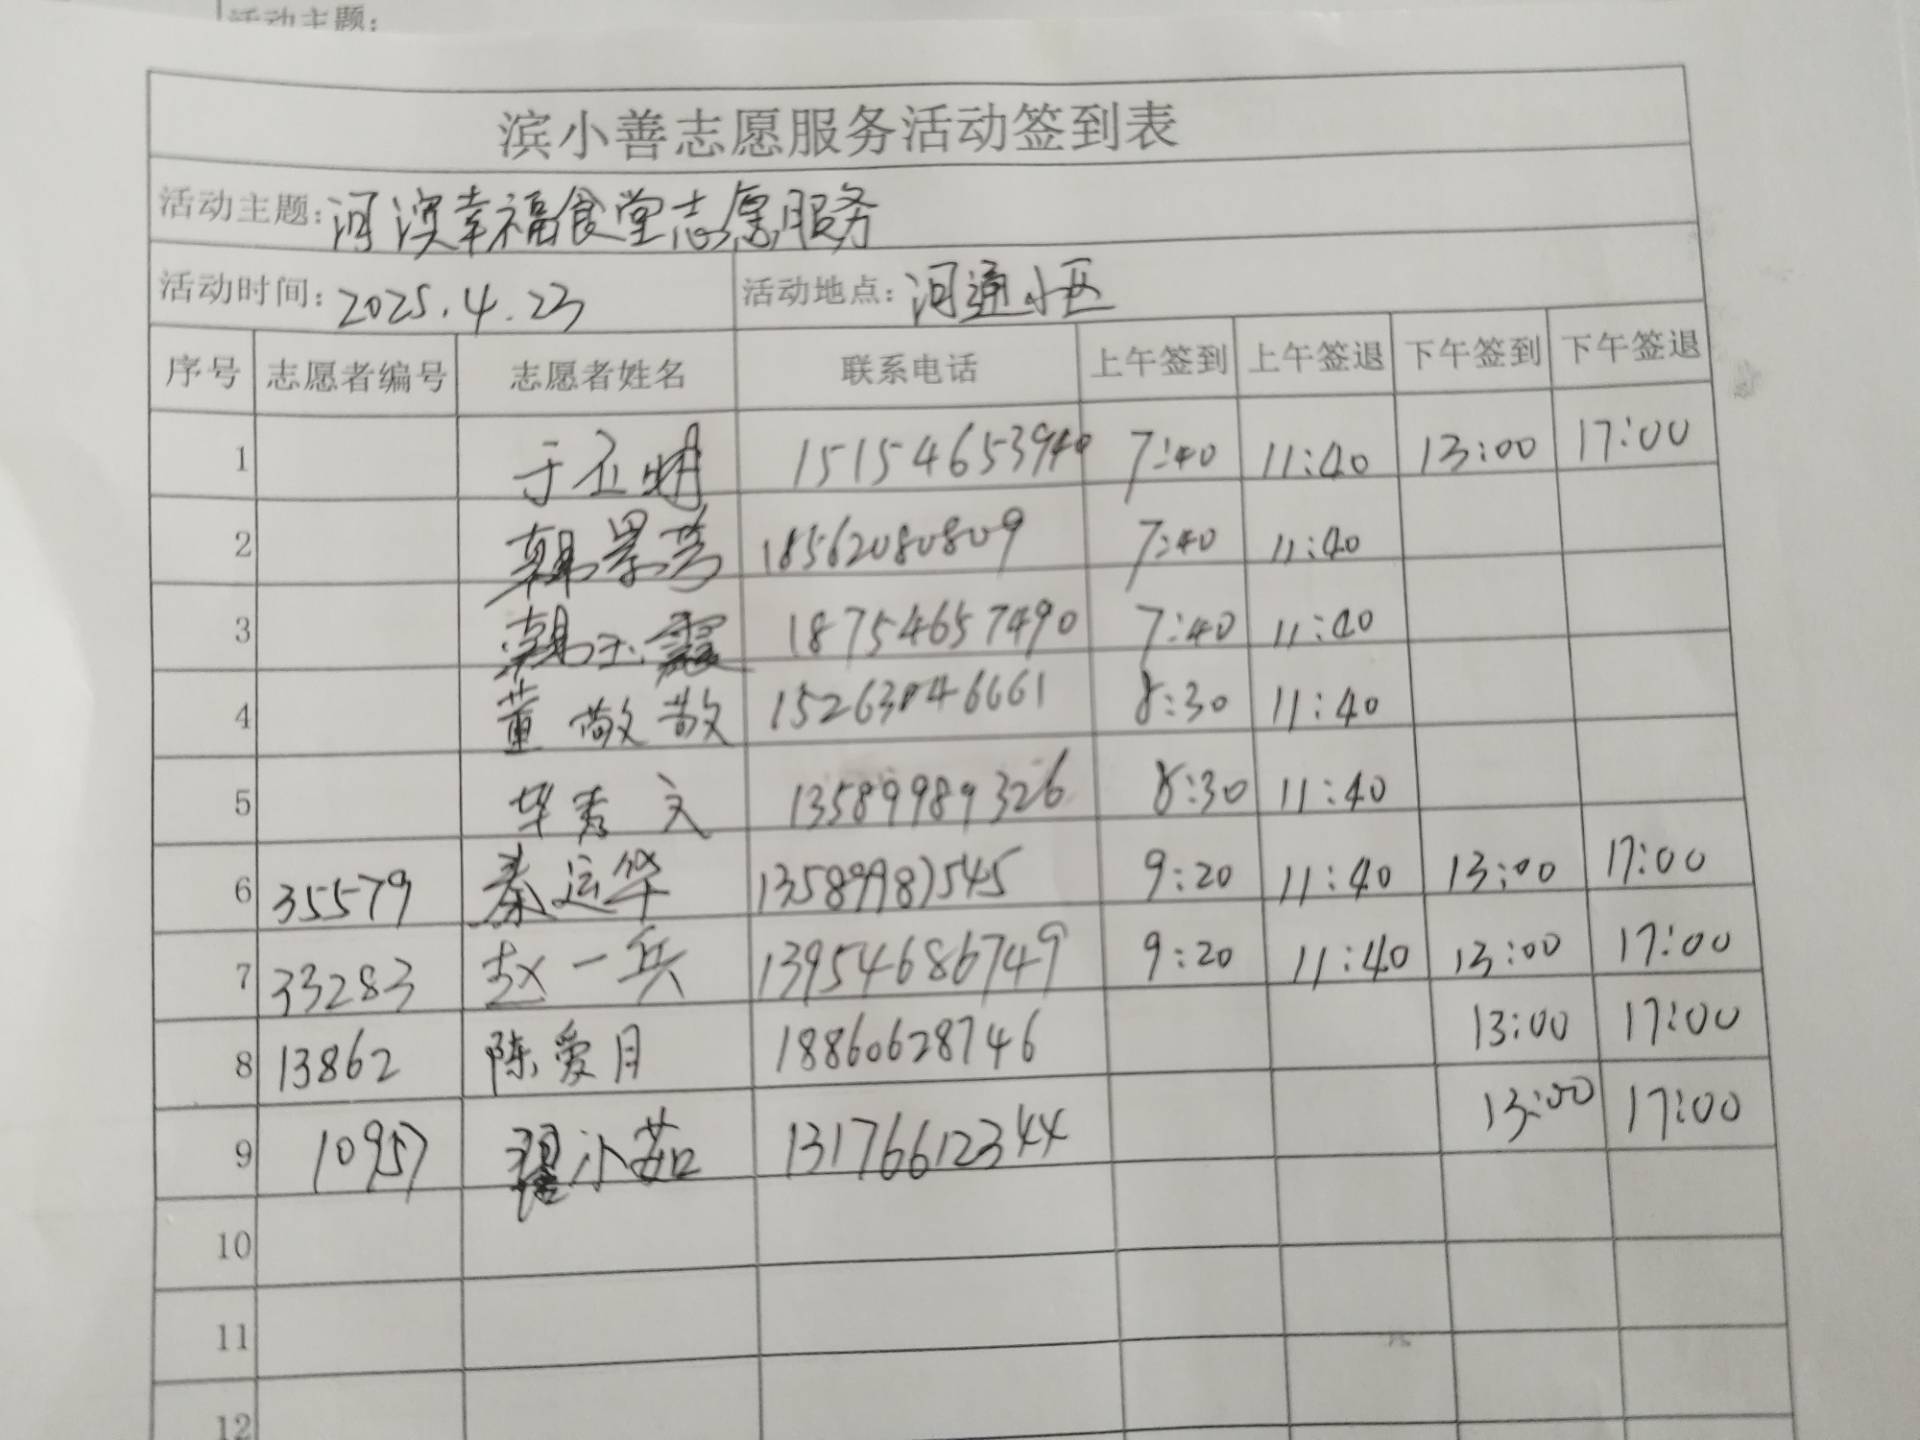 活动主题:
滨小善志愿服务活动签到表
活动主题: 河滨幸福食堂志愿服务
活动时间: 2025.4.23 活动地点: 河通小区
序号 志愿者编号 志愿者姓名 联系电话 上午签到 上午签退 下午签到 下午签退
1 于正明 15154653940 7:40 11:40 13:00 17:00
2 韩景芳 18562080809 7:40 11:40
3 韩玉霞 18754657490 7:40 11:40
4 董敬敬 15263046661 8:30 11:40
5 华秀文 13589989326 8:30 11:40
6 35579 秦运华 13589987545 9:20 11:40 13:00 17:00
7 33283 赵一兵 13954686749 9:20 11:40 13:00 17:00
8 13862 陈爱月 18860628746 13:00 17:00
9 10957 翟小茹 13176612344 13:00 17:00
10
11
12